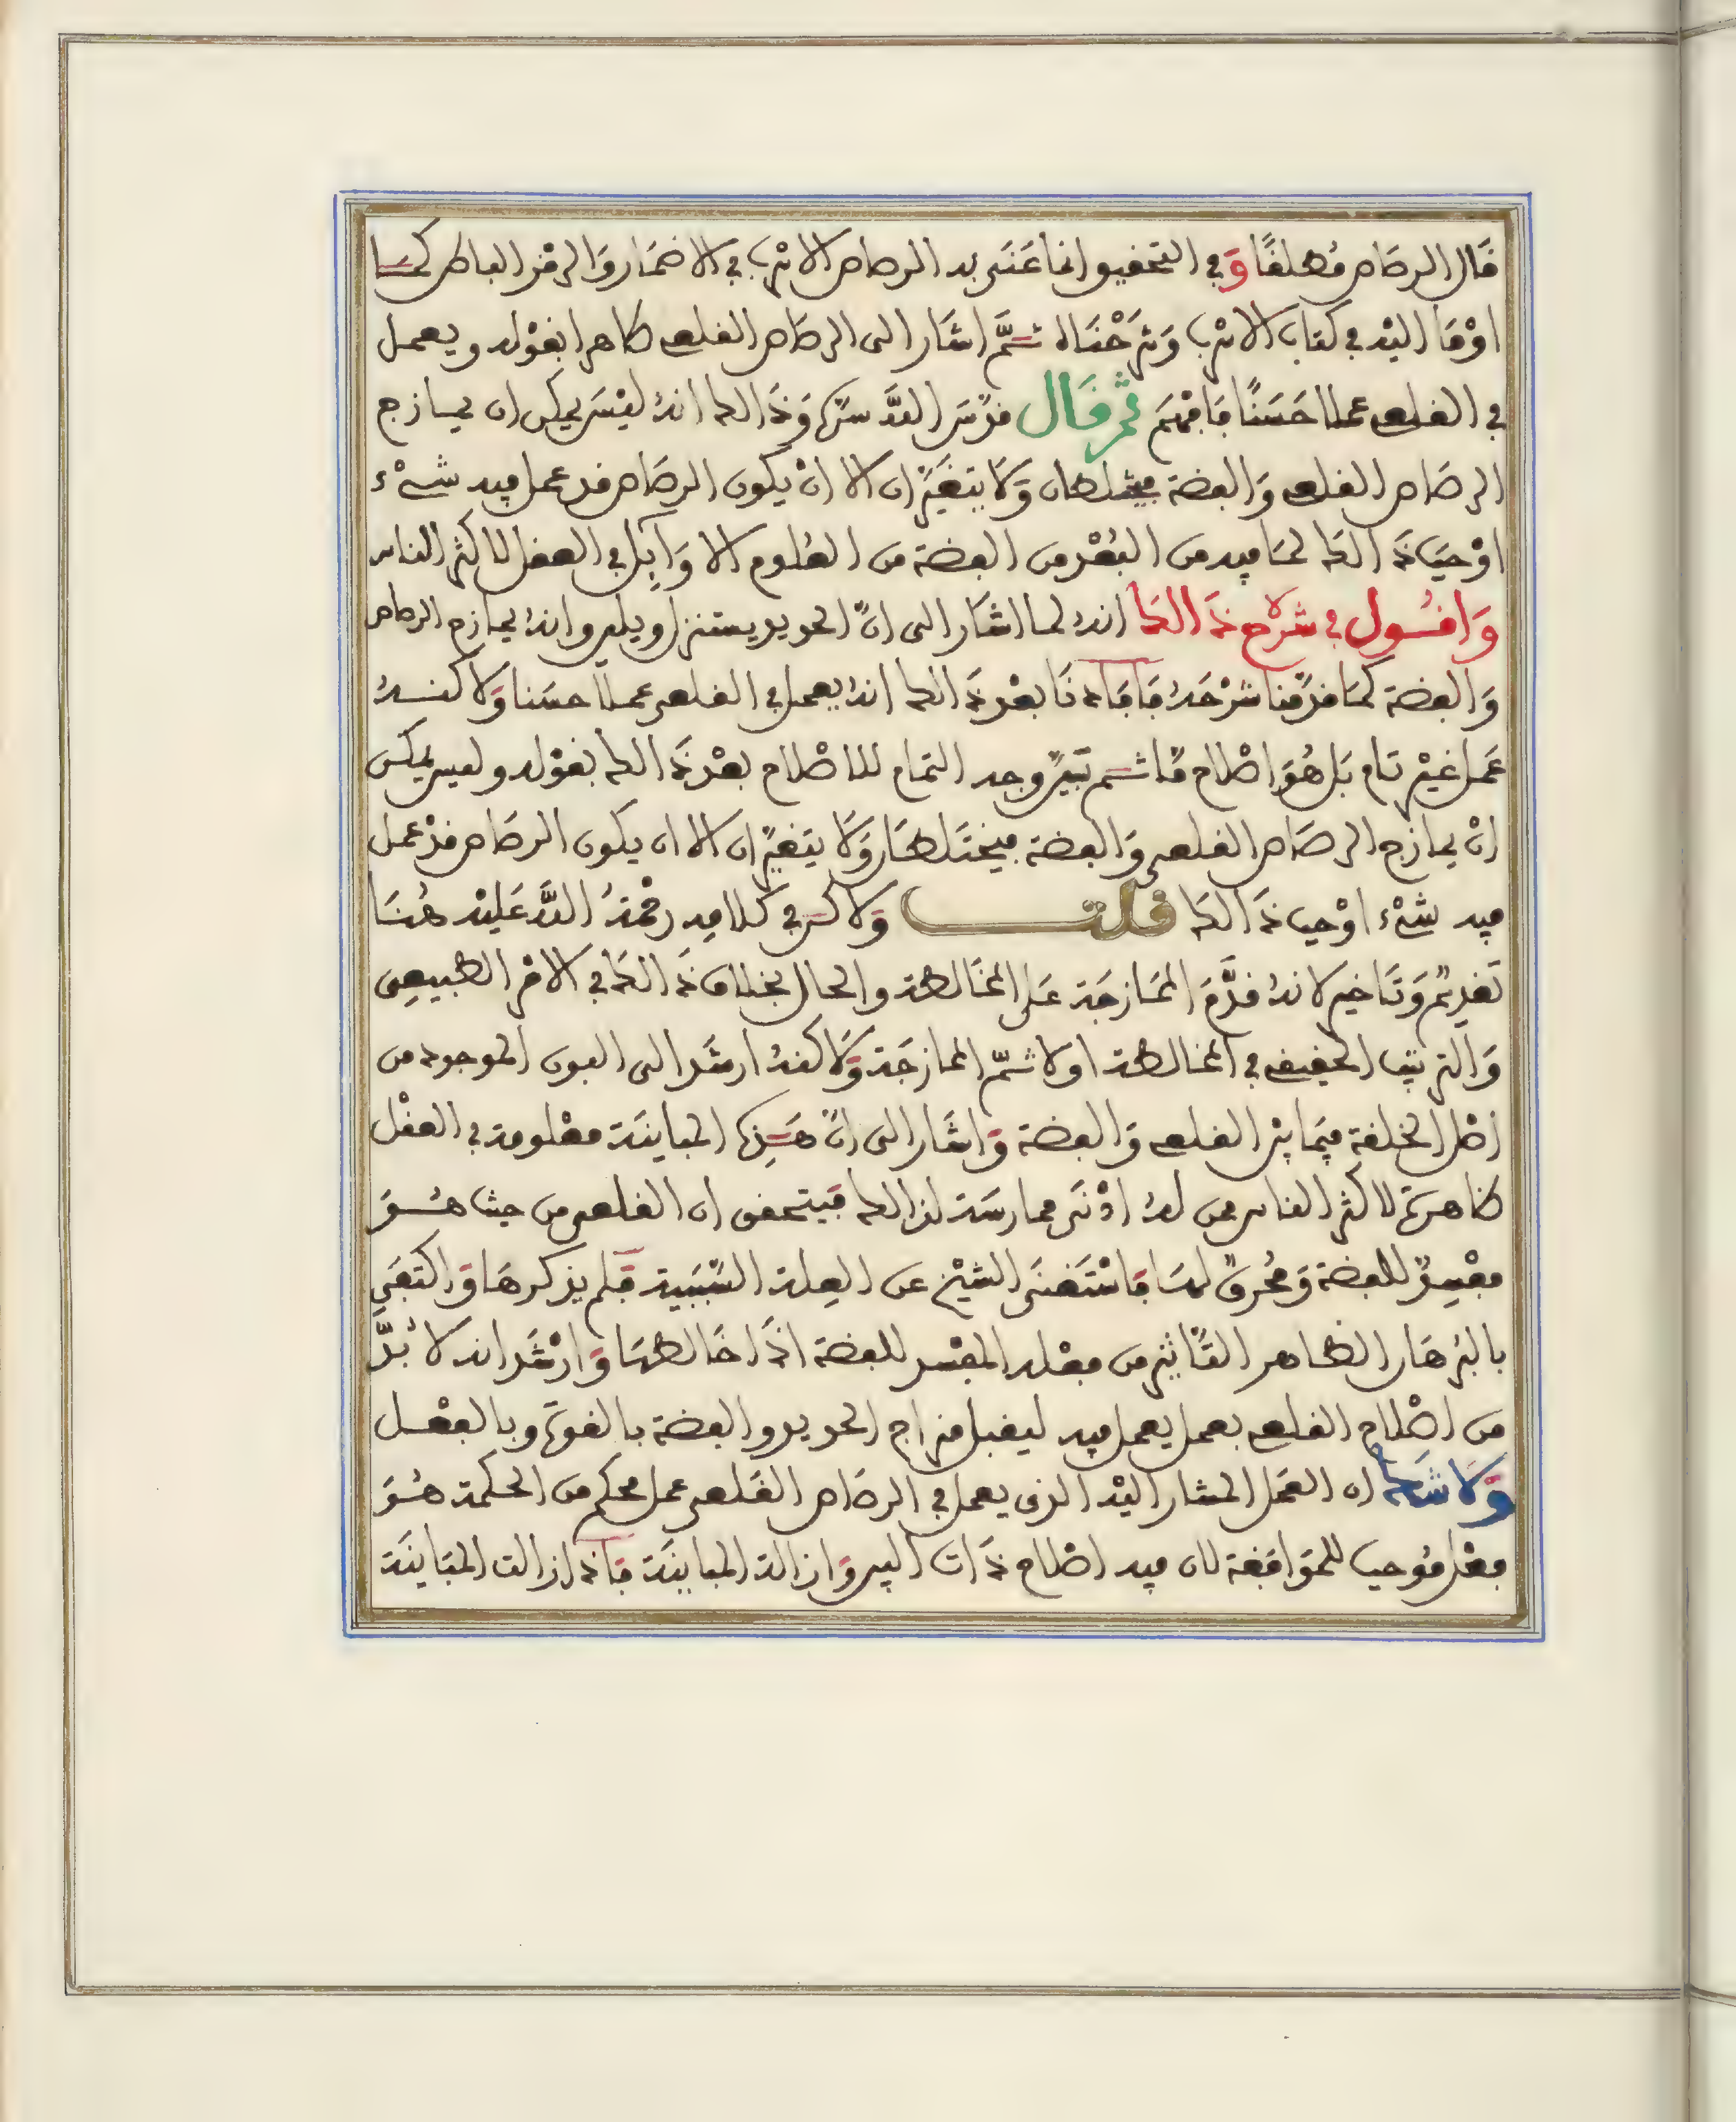 قَال الرصَاص مُطلقًا وَفي التحقيق انما عَنَى به الرصاص الاسرب في الاضمَار وَالرمْز الباطن كمَا
اوْمَا اليْه في كتاب الاسْرب وَشرَحْنَاه ثمَّ اشَار الى الرصَاص القلعي ظاهرا بقوْله ويعمل
في القلعي عملا حَسَنًا فَافهَم ثم قَال قدّسَ اللَّه سرّه وَذَالك انهُ ليْسَ يمكن ان يمازج
الرصَاص القلعي وَالفضة فيختلطان وَلَا يتغيّرَان الا انْ يكون الرصَاص قد عمل فيه شيْء
اوْجبَ ذَالك لمَا فيه من البُعْد من الفضة من العُلوم الاوَايل في العقل لاكثر الناس
وَاقُول في شرْح ذَالكَ انهُ لما اشَار الى انّ الحديد يستنزل ويلين وانهُ يمازج الرصاص
وَالفضة كمَا قدّمنا شرْحَهُ فَافَادنَا بعْد ذَالك انهُ يعمل في القلعي عملا حسَنا وَلَاكنهُ
عَمل غيْر تام بَل هُوَ اصْلاح مّا ثم تبَيّن وجه التمام للاصْلاح بعْد ذَالك بقوْله وليس يمكن
انْ يمازج الرصَاص القلعي وَالفضة فيختَلطَان وَلَا يتغيّران الا ان يكون الرصَاص قدْ عمل
فيه شيْء اوْجب ذَالكَ قلت وَلَاكن في كلامه رحْمةُ اللَّه عَليْه هُنَا
تقديم وَتَاخير لانهُ قدَّمَ الممَازجَة عَلى المخَالطة والحال بخلاف ذَالكَ في الامْر الطبيعي
وَالترتيب الحقيقي في المخالطة اولا ثمّ الممازجَة وَلَاكنهُ ارشَد الى البون الموجود من
اصْل الخلقة فيمَا بيْن القلعي وَالفضة وَاشَار الى انّ هَذه المباينَة معْلومة في العقْل
ظاهرة لاكثر الناس ممن لهُ ادْنَى ممارسَة لذالك فيتحقق ان القلعي من حيث هُوَ
مفْسدٌ للفضة وَمُحْرقٌ لهَا فَاسْتَغنَى الشيْخ عن العلة السّبَبية فلم يذكرهَا وَاكتفَى
بالبُرهَان الظاهر التَّاثير من فعْله المفْسد للفضة اذَا خَالطهَا وَارْشَد انه لَا بُدَّ
من اصْلاح القلعي بعمل يعمل فيه ليقبل مزاج الحديد والفضة بالقوة وبالفعْل
وَلَا شَكَّ ان العَمَل المشار اليْه الذي يعمل في الرصَاص القَلعي عمل محكم من الحكمة هُوَ
فعْل مُوجب للمُوَافَقة لان فيه اصْلاح ذَات البين وَازالة المباينَة فَاذا زالت المبَاينَة